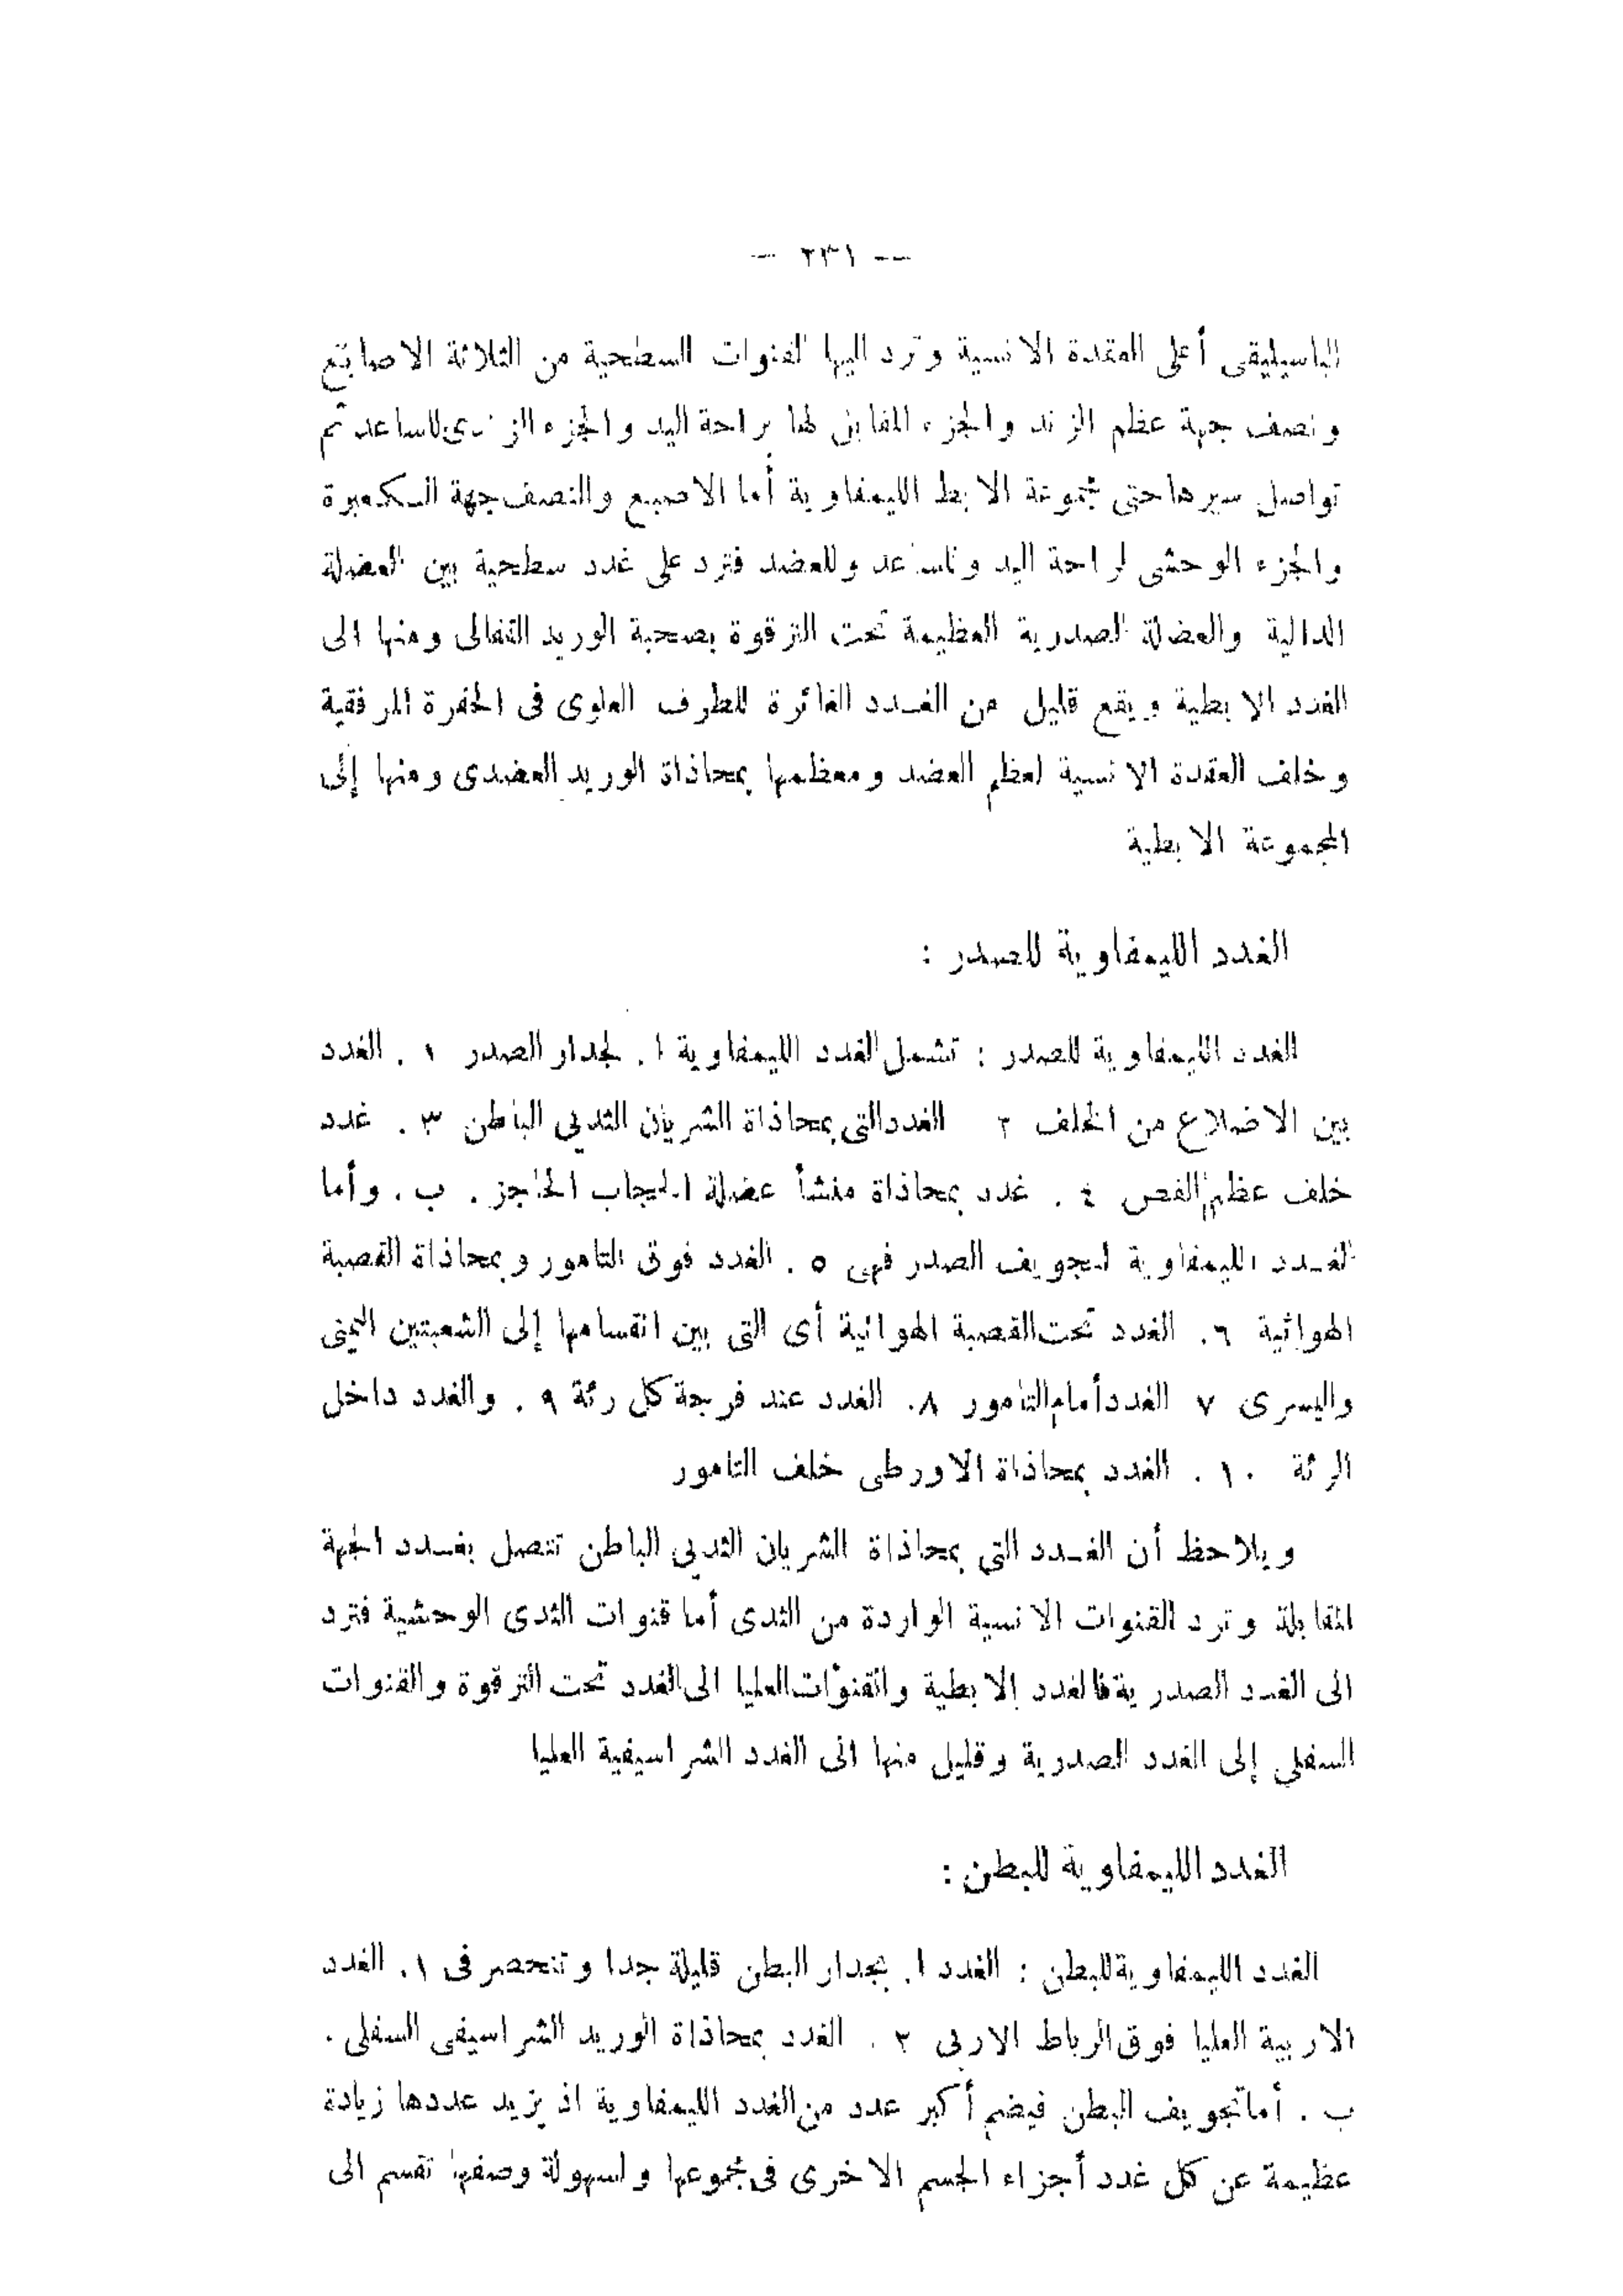 — ٢٣١ —
الباسيليقى أعلى العقدة الانسية وترد اليها القنوات السطحية من الثلاثة الاصابع
ونصف جهة عظم الزند والجزء المقابل لها براحة اليد والجزء الزندى للساعد ثم
تواصل سيرها حتى مجموعة الابط الليمفاوية أما الاصبع والنصف جهة الكعبرة
والجزء الوحشى لراحة اليد وللساعد وللعضد فترد على غدد سطحية بين العضلة
الدالية والعضلة الصدرية العظيمة تحت الترقوة بصحبة الوريد القفالى ومنها الى
الغدد الابطية ويقع قليل من الغدد الغائرة للطرف العلوى فى الحفرة المرفقية
وخلف العقدة الانسية لعظم العضد ومعظمها بمحاذاة الوريد العضدى ومنها إلى
المجموعة الابطية
الغدد الليمفاوية للصدر :
الغدد الليمفاوية للصدر : تشمل الغدد الليمفاوية ا. لجدار الصدر ١ . الغدد
بين الاضلاع من الخلف ٢ الغدد التى بمحاذاة الشريان الثديى الباطن ٣ . غدد
خلف عظم القص ٤ . غدد بمحاذاة منشأ عضلة الحجاب الحاجز . ب . وأما
الغدد الليمفاوية لتجويف الصدر فهى ٥ . الغدد فوق التامور وبمحاذاة القصبة
الهوائية ٦. الغدد تحت القصبة الهوائية أى التى بين انقسامها إلى الشعبتين اليمنى
واليسرى ٧ الغدد أمام التامور ٨. الغدد عند فرجة كل رئة ٩ . والغدد داخل
الرئة ١٠ . الغدد بمحاذاة الاورطى خلف التامور
ويلاحظ أن الغدد التى بمحاذاة الشريان الثديى الباطن تتصل بغدد الجهة
المقابلة وترد القنوات الانسية الواردة من الثدى أما قنوات الثدى الوحشية فترد
الى الغدد الصدرية فالغدد الابطية والقنوات العليا الى الغدد تحت الترقوة والقنوات
السفلى إلى الغدد الصدرية وقليل منها الى الغدد الشراسيفية العليا
الغدد الليمفاوية للبطن :
الغدد الليمفاوية للبطن : الغدد ا. بجدار البطن قليلة جدا وتنحصر فى ١. الغدد
الاربية العليا فوق الرباط الاربى ٢ . الغدد بمحاذاة الوريد الشراسيفى السفلى .
ب . أما تجويف البطن فيضم أكبر عدد من الغدد الليمفاوية اذ يزيد عددها زيادة
عظيمة عن كل غدد أجزاء الجسم الاخرى فى مجموعها ولسهولة وصفها تقسم الى